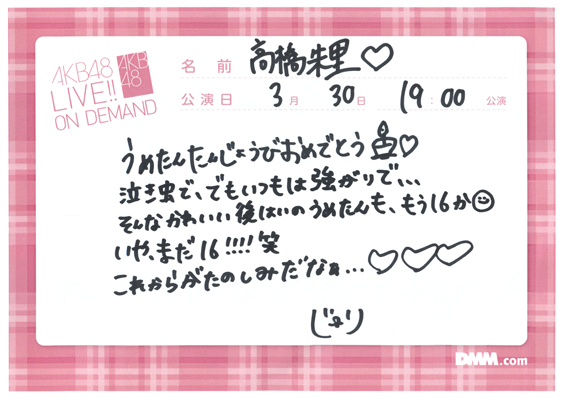 AKB48
LIVE!!
ON DEMAND
AKB
48
名前 高橋朱里♡
公演日 3月 30日 19:00 公演
うめたんたんじょうびおめでとう♡
泣き虫で、でもいつもは強がりで、、、
そんなかわいい後はいのうめたんも、もう16か
いや、まだ16!!!!笑
これからがたのしみだなぁ...♡♡♡
じゅり
DMM.com